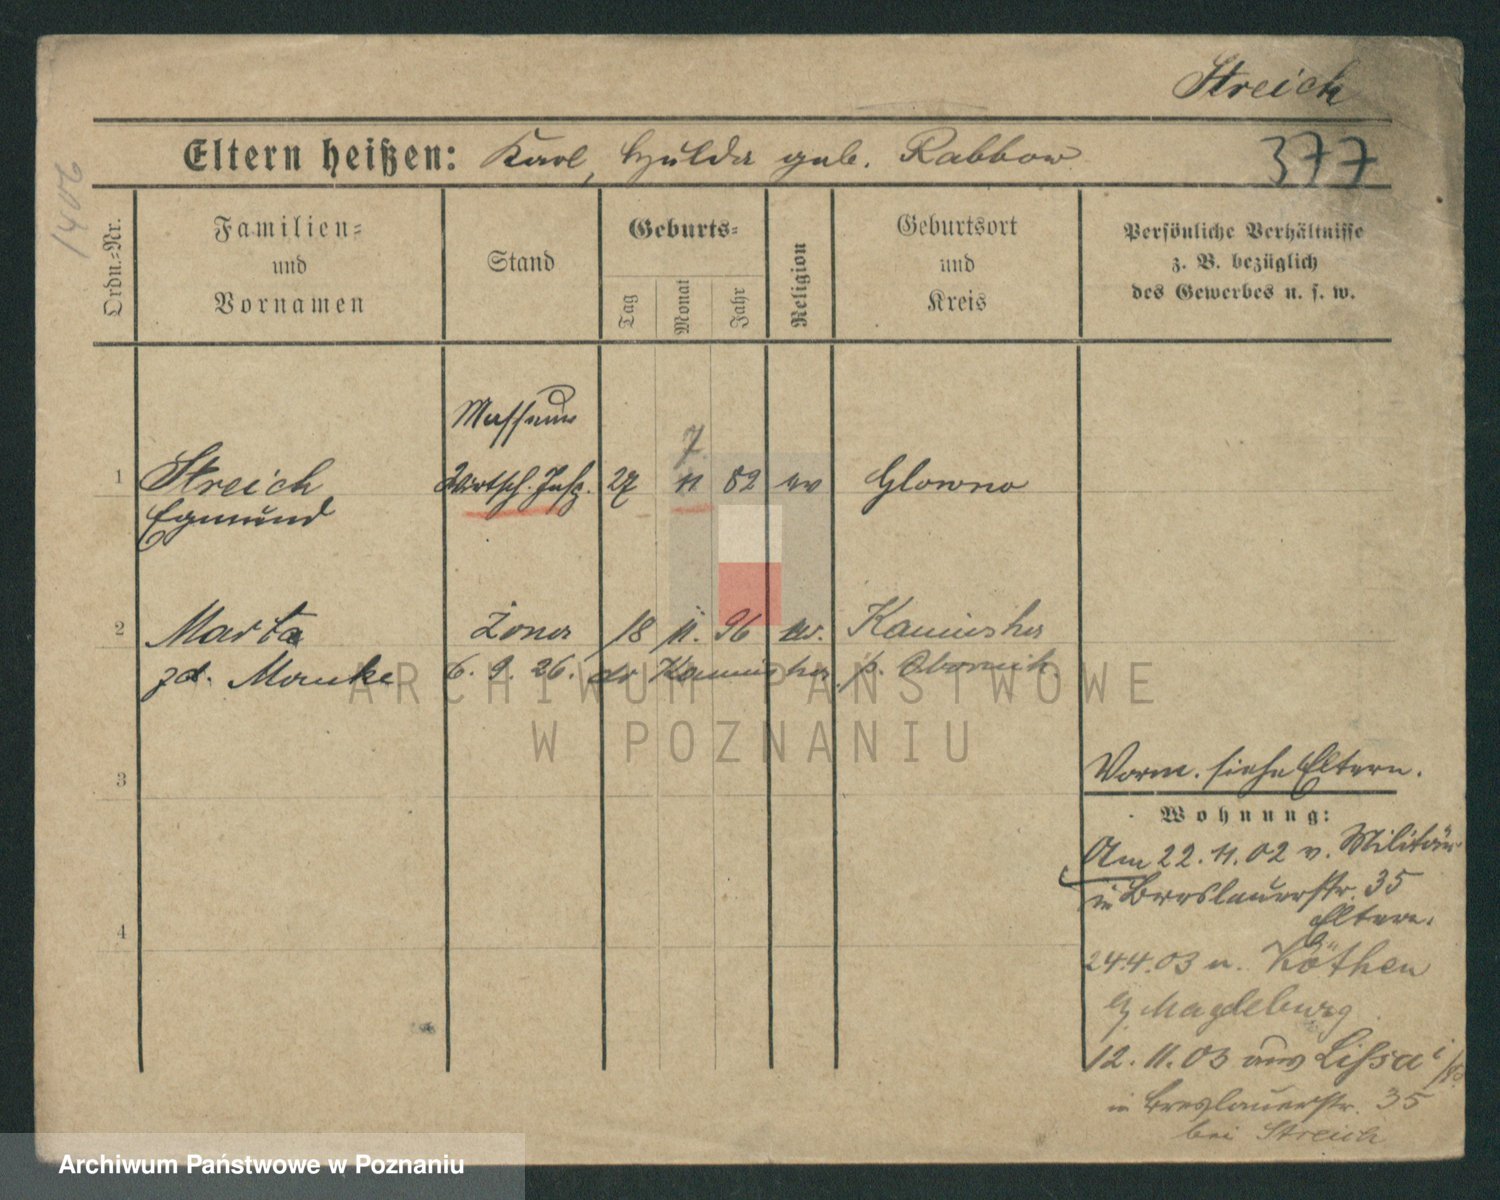 Streich
Eltern heißen: Karl, Hulda geb. Rabbow
377
1406
Ordn.-Nr.
Familien-
und
Vornamen
Stand
Geburts-
Tag
Monat
Jahr
Religion
Geburtsort
und
Kreis
Persönliche Verhältnisse
z. B. bezüglich
des Gewerbes u. s. w.
7
1 Streich Wirtsch. Insp. 27 11 82 ev Glowno
Egmund
2 Marta Żona 18 11. 96 ev. Kamińska
zd. Manke 6. 9. 26. do Kamińska p. Obornik.
3
4
Vorm. siehe Eltern.
Wohnung:
Am 22.11.02 v. Militär
in Breslauerstr. 35
Eltern.
24.4.03 n. Köthen
b/ Magdeburg
12.11.03 aus Lissa i/P.
in Breslauerstr. 35
bei Streich
ARCHIWUM PAŃSTWOWE
W POZNANIU
Archiwum Państwowe w Poznaniu